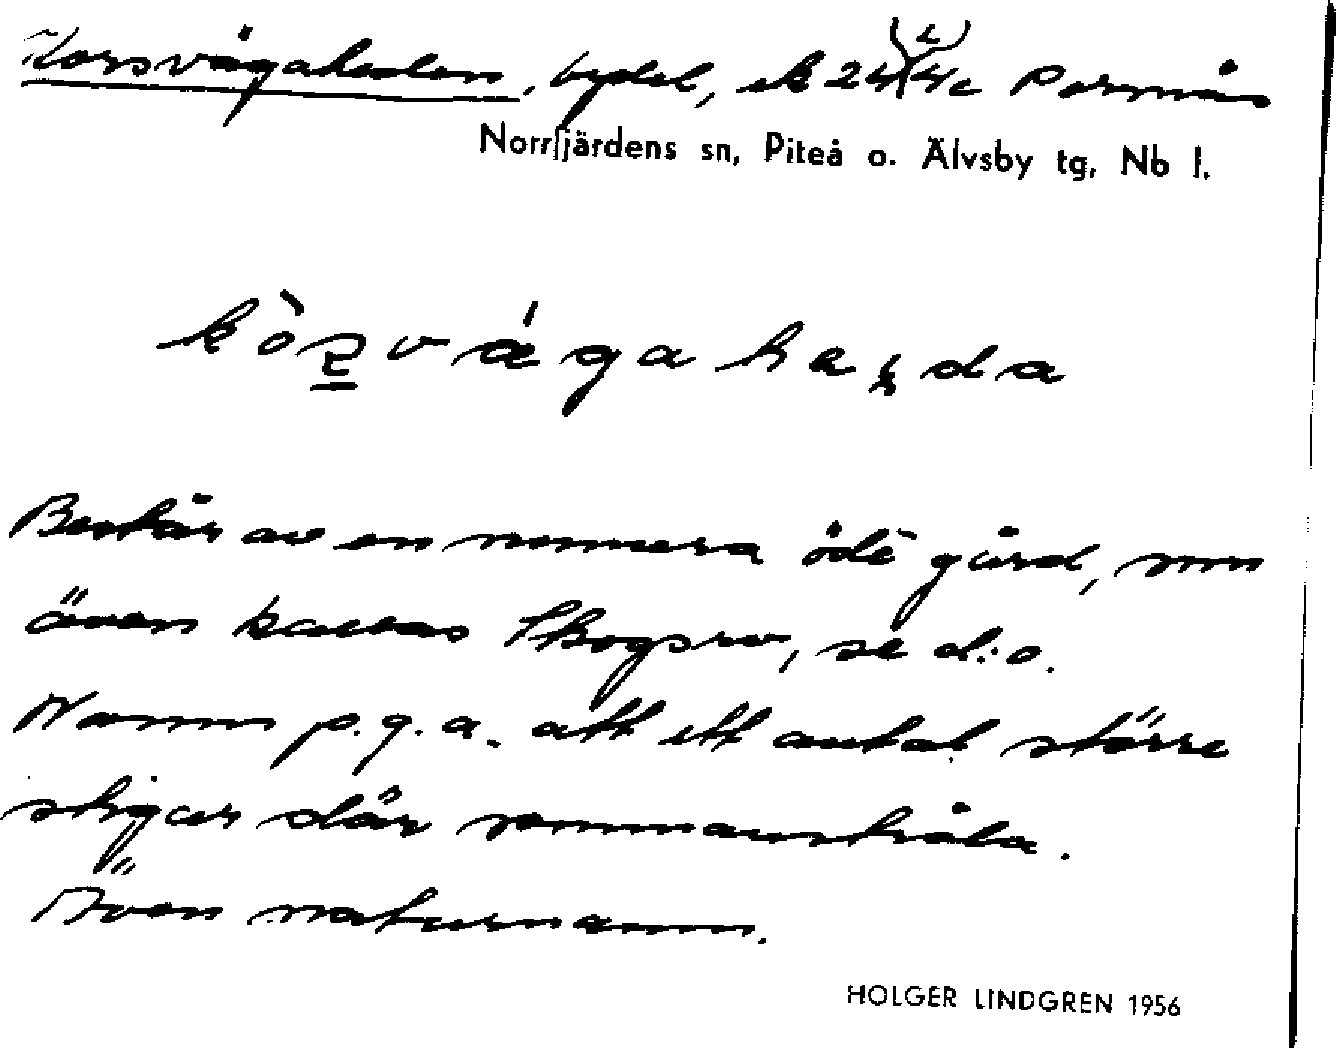 Korsvägaheden, bydel, ek 24 4c Porsnäs
Norrfjärdens sn, Piteå o. Älvsby tg, Nb l.
Består av en numera öde gård, som
även kallas Skogsro, se d:o.
Namn p.g.a. att ett antal större
stigar där sammanstråla.
Även naturnamn.
HOLGER LINDGREN 1956